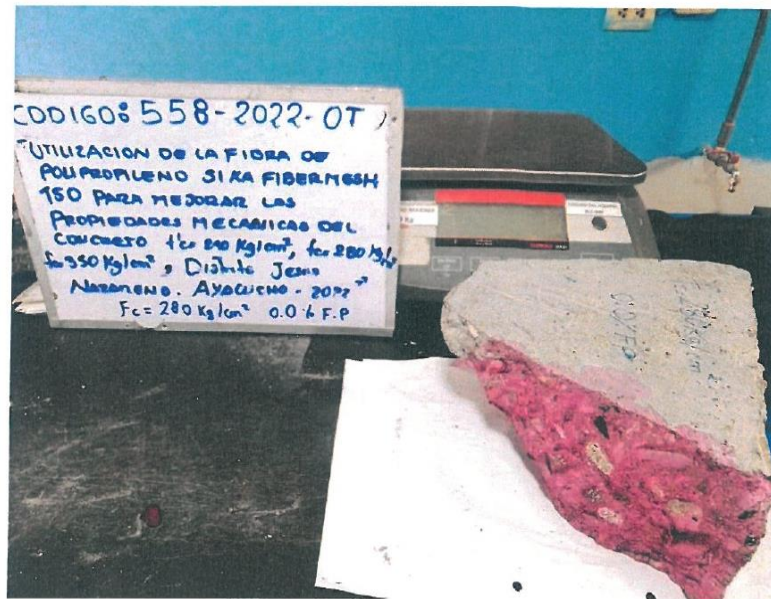 CODIGO: 558-2022-OT
"UTILIZACION DE LA FIBRA DE
POLIPROPILENO SIKA FIBERMESH
150 PARA MEJORAR LAS
PROPIEDADES MECANICAS DEL
CONCRETO f'c= 210 Kg/cm², f'c= 280 Kg/cm²
f'c= 350 Kg/cm², Distrito Jesus
NAZARENO. AYACUCHO - 2022"
Fc = 280 Kg/cm² 0.0 % F.P
280Kg/cm²